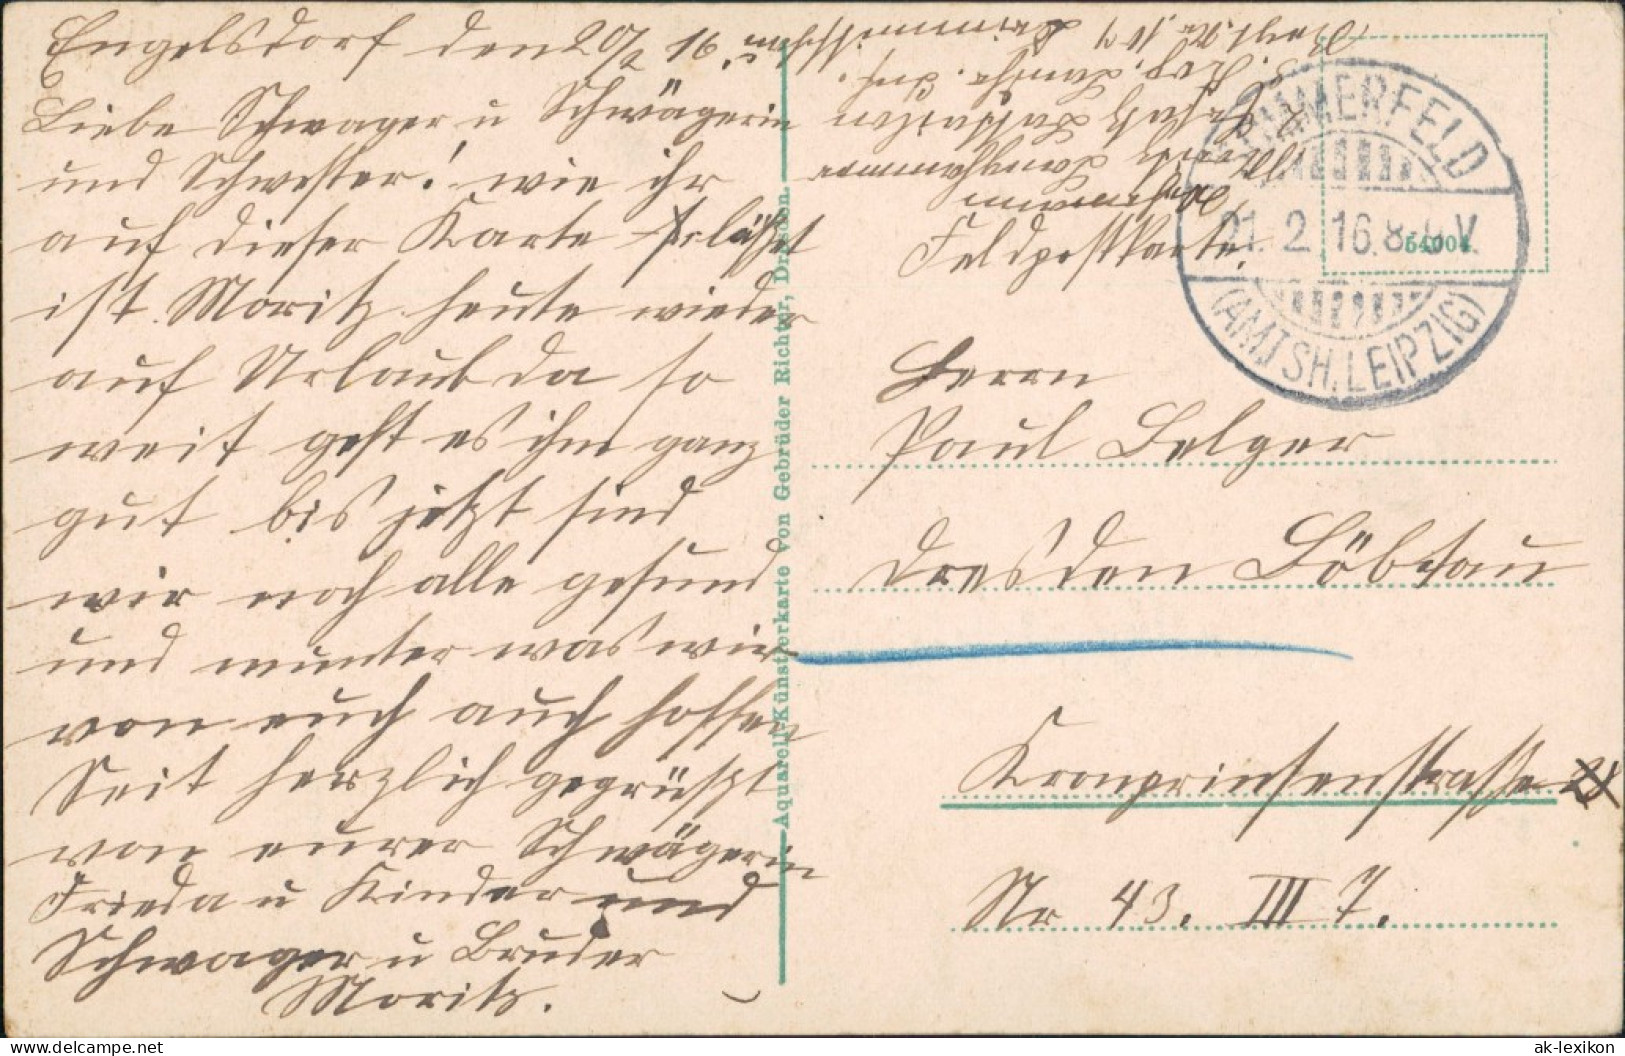 Engelsdorf den 20/2 16.
Liebe Schwager u Schwägerin
und Schwester! wie ihr
auf dieser Karte
ist Moritz heute wieder
auf Urlaub da so
weit geht es ihm ganz
gut bis jetzt sind
wir noch alle gesund
und munter was wir
von euch auch hoffen
Seit herzlich gegrüßt
von eurer Schwägerin
Frieda u Kinder und
Schwager u Bruder
Moritz.
Aquarell-Künstlerkarte von Gebrüder Richter, Dresden.
Feldpostkarte.
54004.
21. 2. 16. 8-9 V.
(AMTSH. LEIPZIG)
Herrn
Paul Belger
Dresden Löbtau
Kronprinsenstrasse
Nr 43. III 7.
ak-lexikon
www.delcampe.net